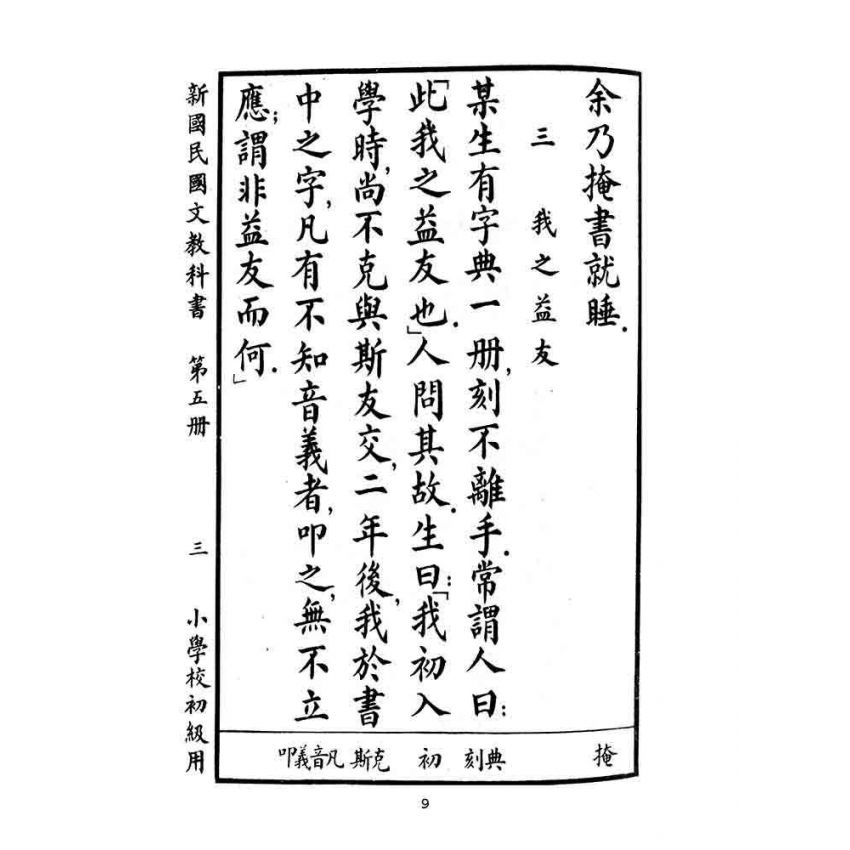 余乃掩書就睡.
三 我之益友
某生有字典一册,刻不離手.常謂人曰:
「此我之益友也.」人問其故.生曰:「我初入
學時,尚不克與斯友交,二年後,我於書
中之字,凡有不知音義者,叩之,無不立
應;謂非益友而何.」
掩
典刻
初
克斯
凡音義叩
新國民國文教科書 第五册 三 小學校初級用
9